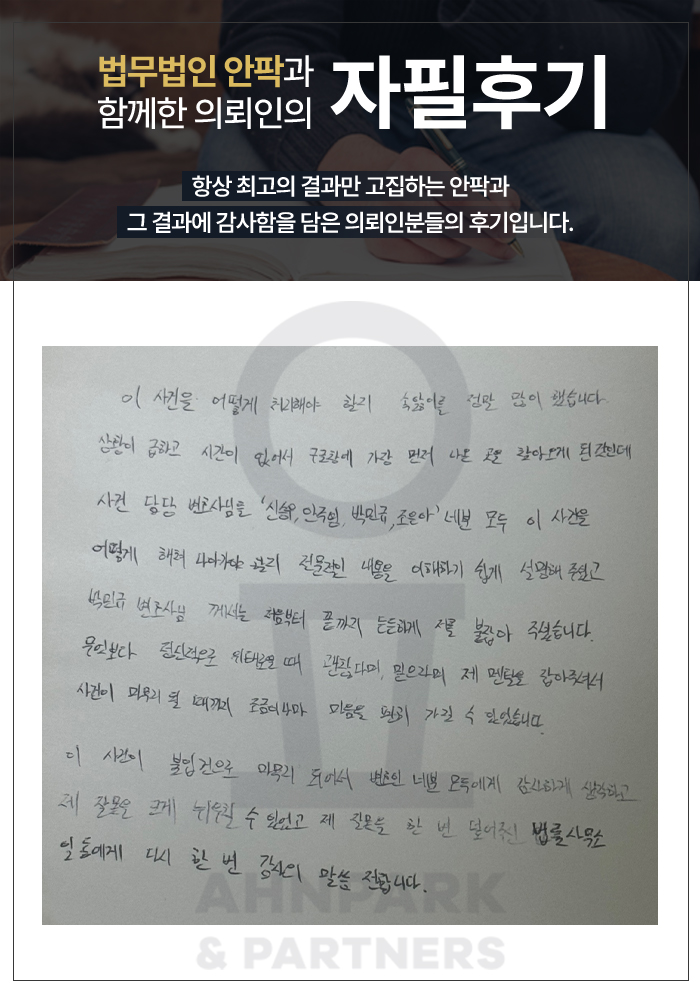 법무법인 안팍과
함께한 의뢰인의
자필후기
항상 최고의 결과만 고집하는 안팍과
그 결과에 감사함을 담은 의뢰인분들의 후기입니다.
이 사건을 어떻게 처리해야 할지 정말 많이 했습니다.
상황이 급하고 시간이 없어서 가장 먼저 나온 곳을 찾아오게 된건인데
사건 담당 변호사님들 네분 모두 이 사건을
어떻게 해쳐 나아가야 할지 전문적인 내용을 이해하기 쉽게 설명해 주셨고
박민규 변호사님 께서는 처음부터 끝까지 든든하게 저를 붙잡아 주셨습니다.
무엇보다 정신적으로 위태로울 때 괜찮다며, 믿으라며 제 멘탈을 잡아주셔서
사건이 마무리 될 때까지 조금이나마 마음을 편히 가질 수 있었습니다.
이 사건이 불입건으로 마무리 되어서 변호인 네분 모두에게 감사하게 생각하고
제 잘못을 크게 뉘우칠 수 있었고 제 잘못을 한 번 덜어주신 법률사무소
일동에게 다시 한 번 감사의 말씀 전합니다.
AHNPARK
& PARTNERS